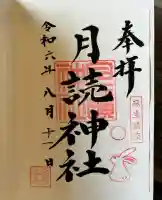 奉拝
月読神社
令和六年八月十一日